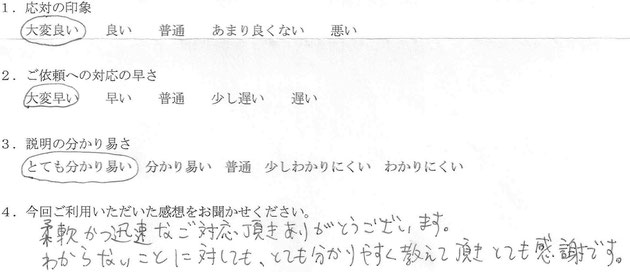 1．応対の印象
大変良い　良い　普通　あまり良くない　悪い
2．ご依頼への対応の早さ
大変早い　早い　普通　少し遅い　遅い
3．説明の分かり易さ
とても分かり易い　分かり易い　普通　少しわかりにくい　わかりにくい
4．今回ご利用いただいた感想をお聞かせください。
柔軟かつ迅速なご対応頂きありがとうございます。
わからないことに対しても、とても分かりやすく教えて頂きとても感謝です。